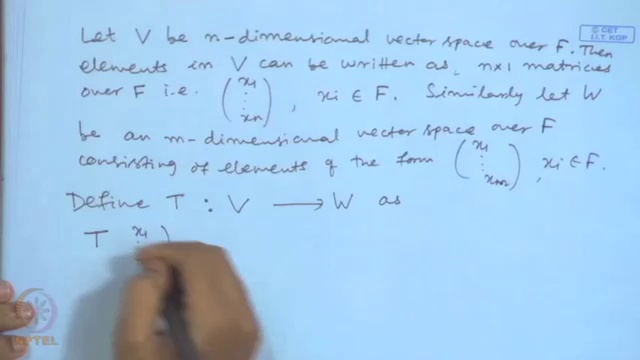 © CET
I.I.T. KGP
Let V be n-dimensional vector space over F. Then
elements in V can be written as, n×1 matrices
over F i.e. (x₁ ⋮ xₙ), xi ∈ F. Similarly let W
be an m-dimensional vector space over F
consisting of elements of the form (x₁ ⋮ xₘ), xi ∈ F.
Define T : V ⟶ W as
T x₁ )
NPTEL